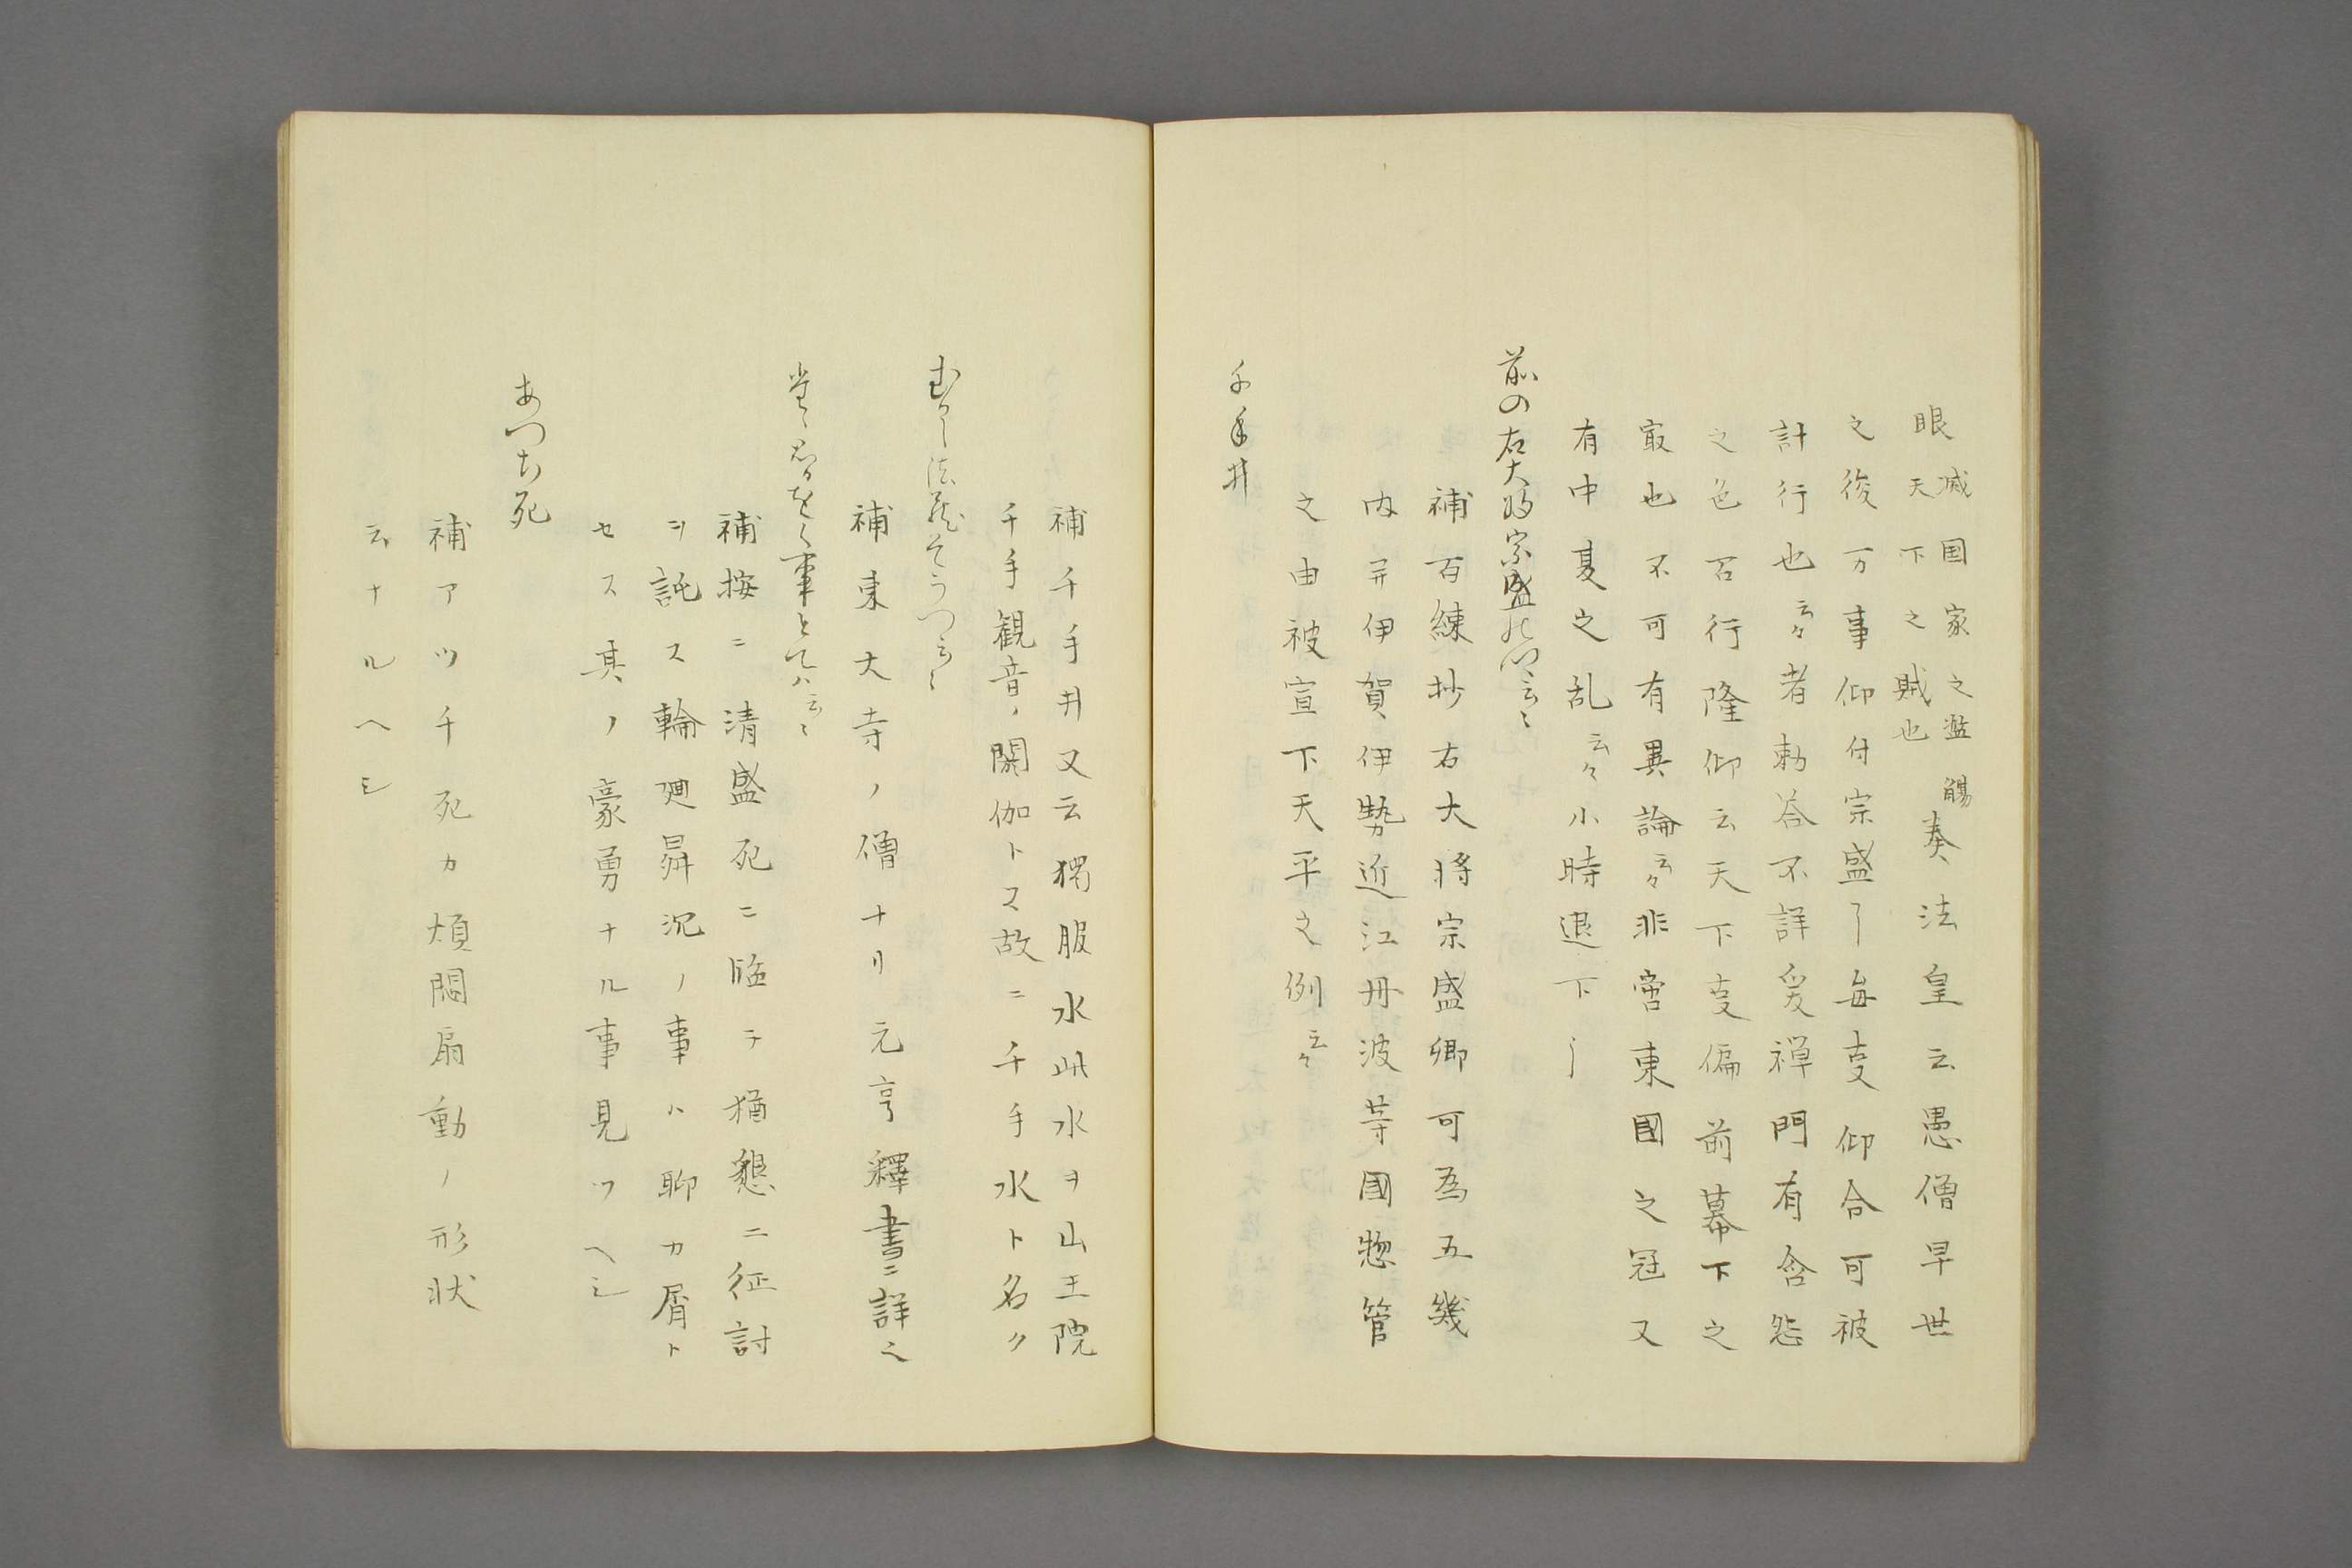 眼 滅国家之濫觴 天下之賊也 奏法皇云愚僧早世
之後万事仰付宗盛了毎叓仰合可被
計行也云々者勅荅不詳爰禅門有含怨
之色召行隆仰云天下叓偏前幕下之
㝡也不可有異論云々非啻東國之冠又
有中夏之乱云々小時退下了
前の右大将宗盛
補百練抄右大将宗盛卿可為五幾
内并伊賀伊勢近江丹波等國惣管
之由被宣下天平之例云々
千手井
補千手井又云獨服水此水ヲ山王院
千手観音ノ閼伽トス故ニ千手水ト名ク
むかし法蔵そうつ云〻
補東大寺ノ僧ナリ元亨釋書ニ詳之
事とては云〻
補按ニ清盛死ニ臨テ猶懇ニ征討
ヲ託ス輪廻昇沉ノ事ハ聊カ屑ト
セス其ノ豪勇ナル事見ツヘシ
あつち死
補アツチ死カ煩悶扇動ノ形状
云ナルヘシ